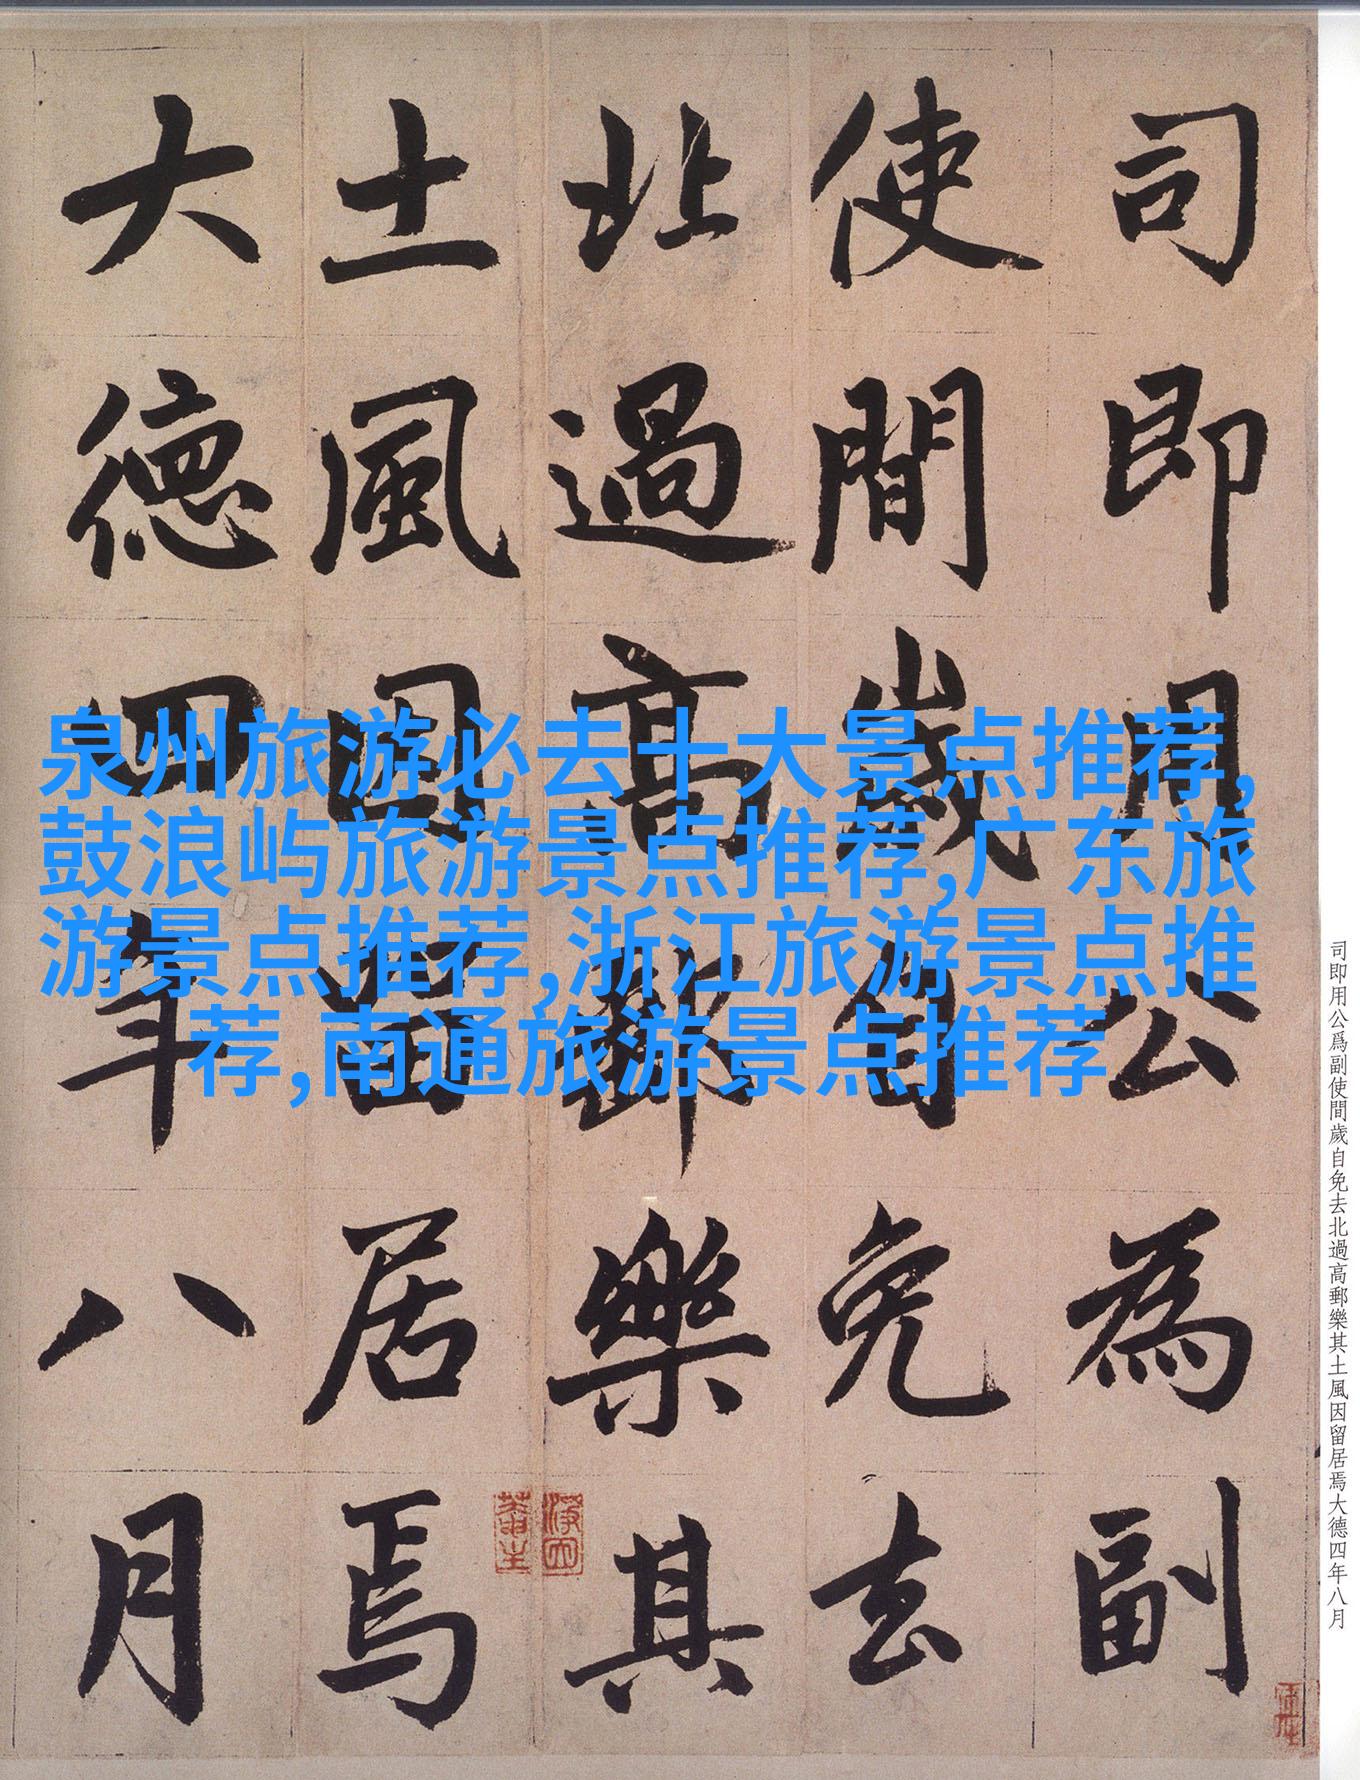 司即用公為副
使間歲自免去
北過高郵樂其
土風因留居焉
大德四年八月
泉州旅游必去十大景点推荐,
鼓浪屿旅游景点推荐,广东旅
游景点推荐,浙江旅游景点推
荐,南通旅游景点推荐
司即用公爲副使間歲自免去北過高郵樂其土風因留居焉大德四年八月